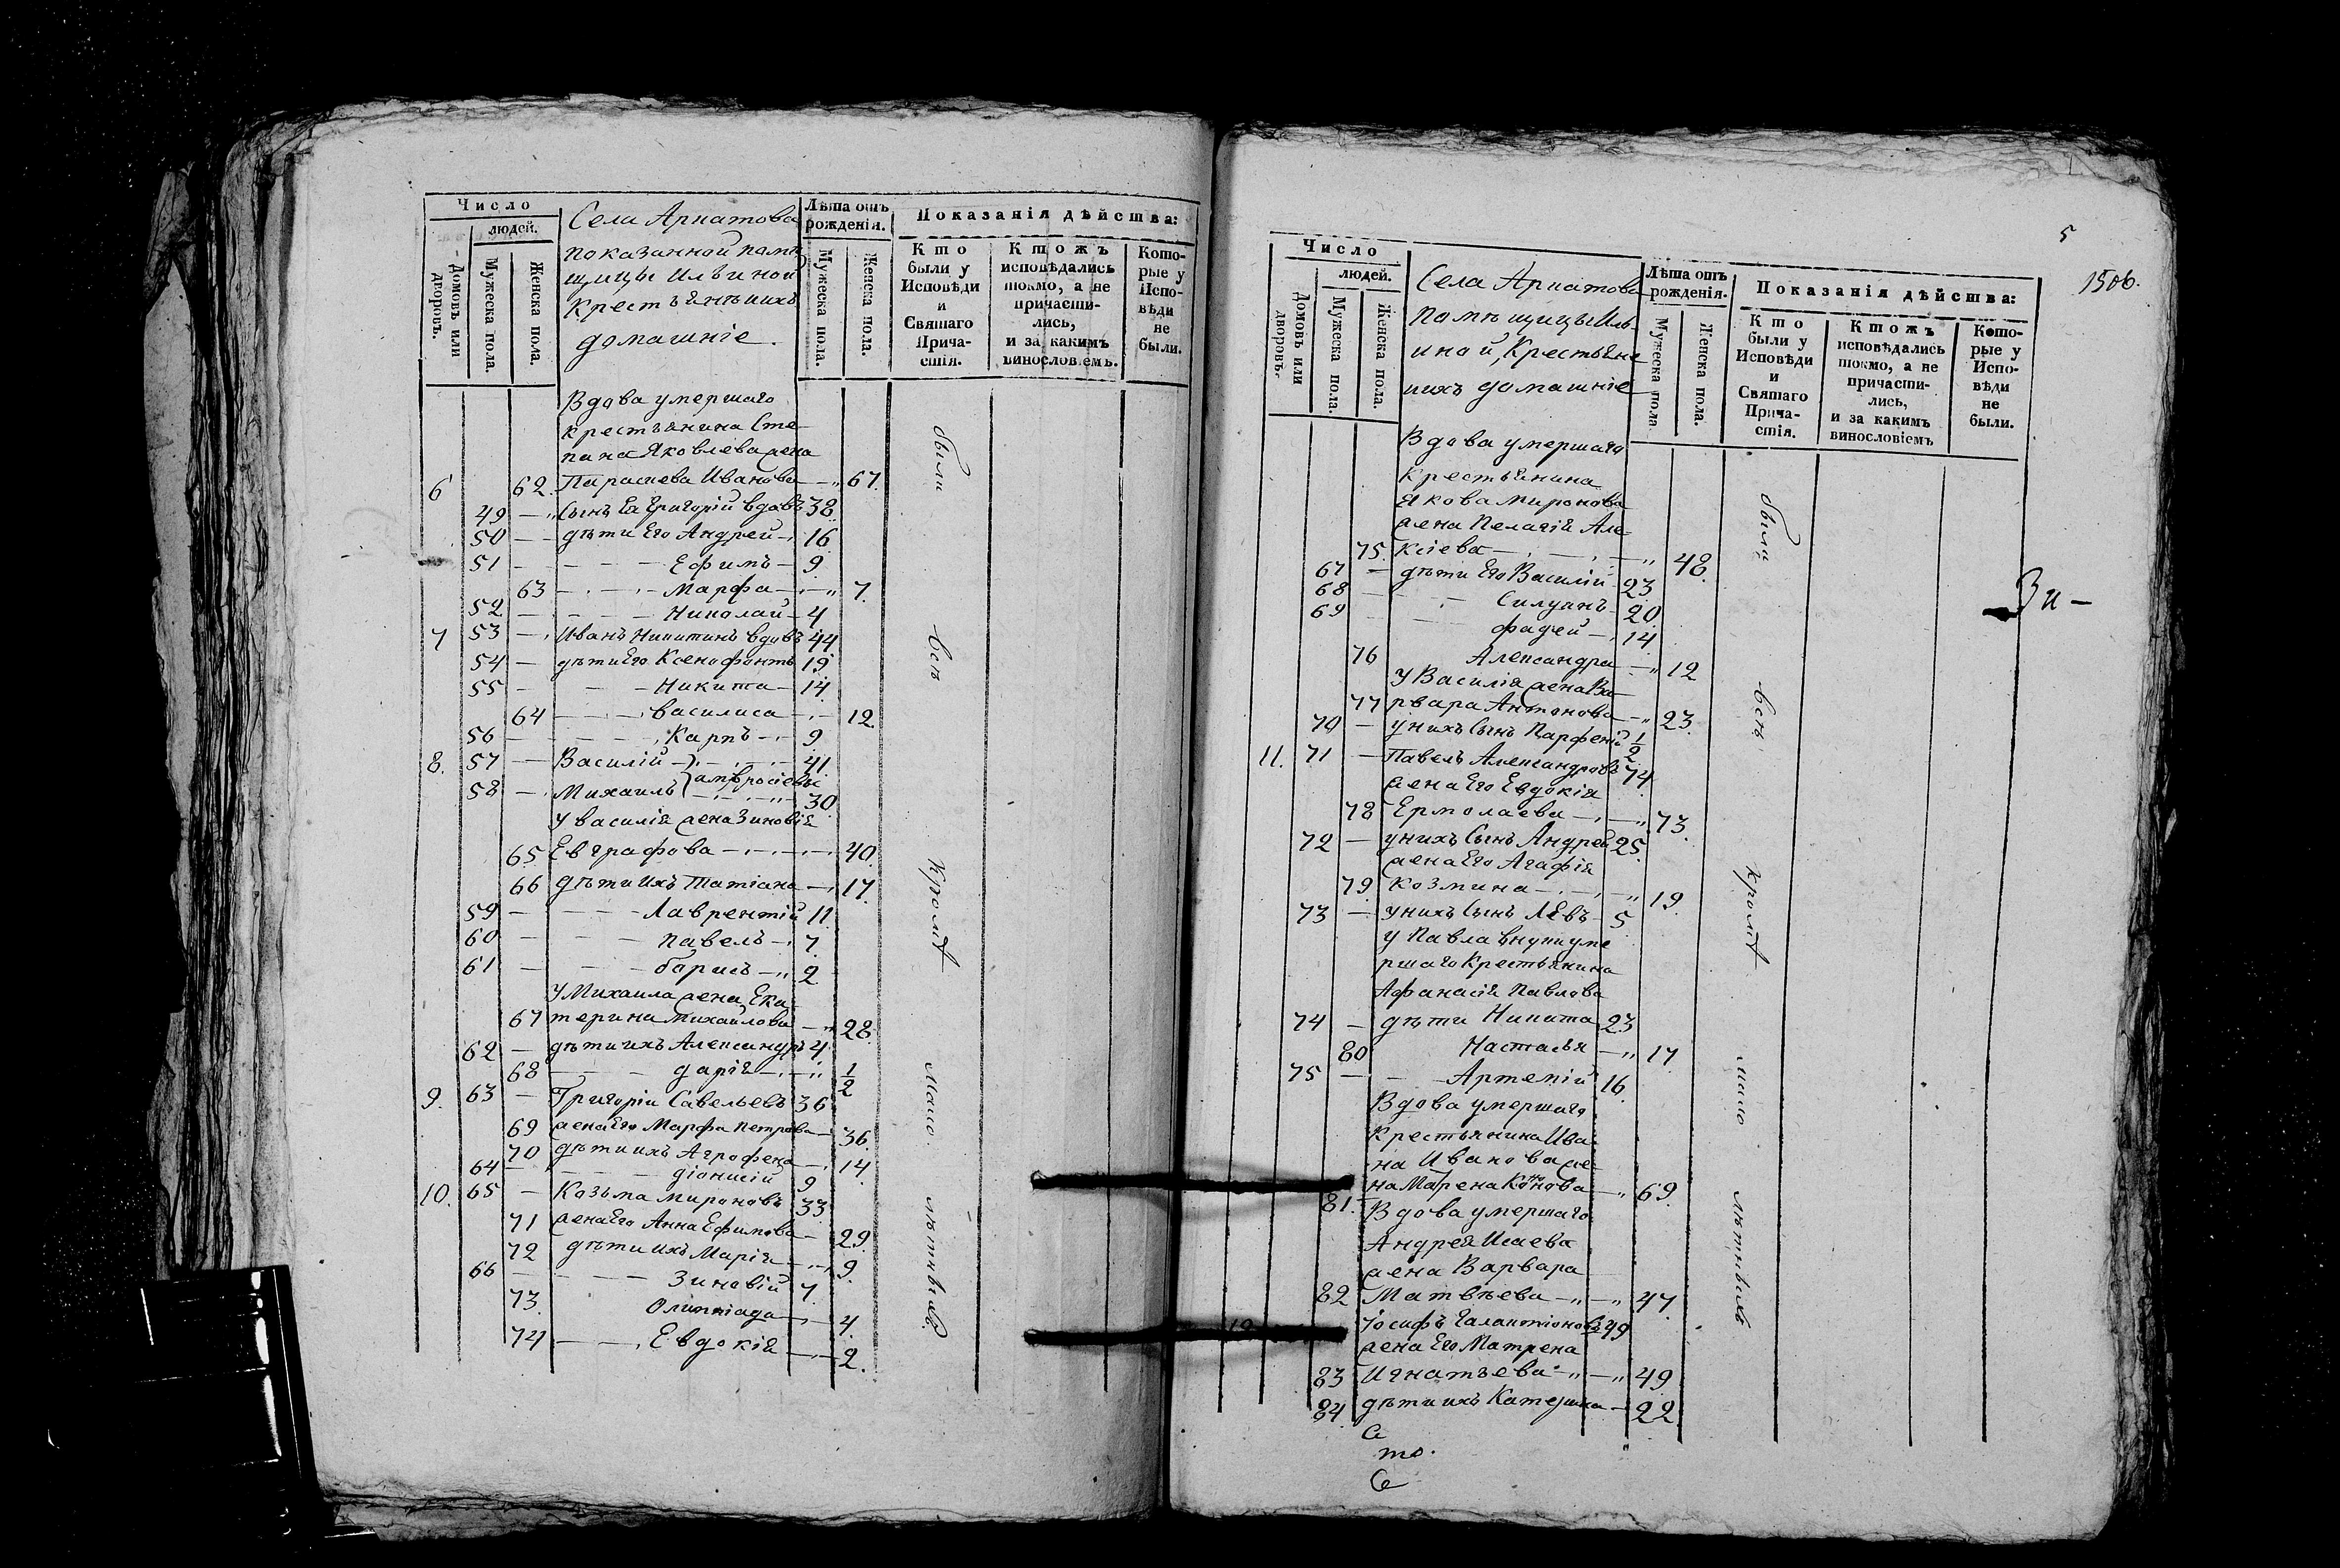 Число
людей.
Домовъ или дворовъ.
Мужеска пола.
Женска пола.
Села Арнатова
показанной помѣ
щицы Ильиной
крестьяне ихъ
домашніе.
Лѣта отъ рожденія.
Мужеска пола.
Женска пола.
Показанія дѣйства:
Кто были у Исповѣди и Святаго Причастія.
Ктожъ исповѣдались токмо, а не причасти-лись, и за какимъ винословіемъ.
Кото-рые у Испо-вѣди не были.
Вдова умершаго
крестьянина Сте
пана Яковлева жена
6 62. Парасева Иванова — 67.
49 — Сынъ Ея Григорій вдовъ 38
50 — дѣти Его Андрей — 16
51 — Ефимъ — 9
63 — Марфа — 7.
52 — Николай — 4
7 53 — Иванъ Никитинъ вдовъ 44
54 — дѣти Его Ксенофонтъ 19
55 — Никита — 14
64 — Василиса — 12.
56 — Карпъ — 9
8. 57 — Василій — 41.
амвросіевы
58 — Михаилъ — 30
у василія жена Зиновія
65 Евграфова — 40.
66 дѣти ихъ Татіана — 17.
59 — Лаврентій 11
60 — павелъ — 7
61 — барисъ — 2
У Михаила жена Ека
67 терина Михайлова — 28.
62 — дѣти ихъ Александръ 4
68 — дарія — 1/2
9. 63 — Григорій Савельевъ 36
69 жена Его Марфа Петрова — 36.
70 дѣти ихъ Агрофена — 14.
64 — діонисій 9
10. 65 — Козьма Мироновъ 33
71 жена Его Анна Ефимова — 29.
72 дѣти ихъ Марія — 9.
66 — Зиновій 7
73. Олимпіада — 4.
74 — Евдокія — 2.
были
всѣ
кромѣ
мало
лѣтныхъ
5
1506.
Число
людей.
Домовъ или дворовъ.
Мужеска пола.
Женска пола.
Села Арнатова
помѣщицы Иль
иной, Крестьяне
ихъ домашніе
Лѣта отъ рожденія.
Мужеска пола
Женска пола.
Показанія дѣйства:
Кто были у Исповѣди и Святаго Прича-стія.
Ктожъ исповѣдались токмо, а не причасти-лись, и за какимъ винословіемъ
Кото-рые у Испо-вѣди не были.
Вдова умершаго
Крестьянина
Якова Миронова
жена Пелагія Але
75. ксіева — 48.
67 — дѣти Его Василій 23
68 — Силуанъ 20
69 — фадей — 14
76 Александра — 12
у Василія жена Ва
77 рвара Антонова — 23.
70 — у нихъ Сынъ Парфеній 1/2
11. 71 — Павелъ Александровъ 74
жена Его Евдокія
78 Ермолаева — 73.
72 — у нихъ Сынъ Андрей 25.
жена Его Агафія
79. козмина — 19.
73 — у нихъ Сынъ Левъ 5
у Павла внуки уме
ршаго Крестьянина
Афанасія Павлова
74 — дѣти Никита 23
80 Настасья — 17
75 — Артемій 16.
Вдова умершаго
Крестьянина Ива
на Иванова же
81. на Марена Конова — 69.
Вдова умершаго
Андрея Исаева
жена Варвара
82 Матвѣева — 47.
Іосифъ Галактіоновъ 49
жена Его Матрена
83 Игнатьева — 49
84 дѣти ихъ Катерина — 22
были
всѣ
кромѣ
мало
лѣтныхъ
то.